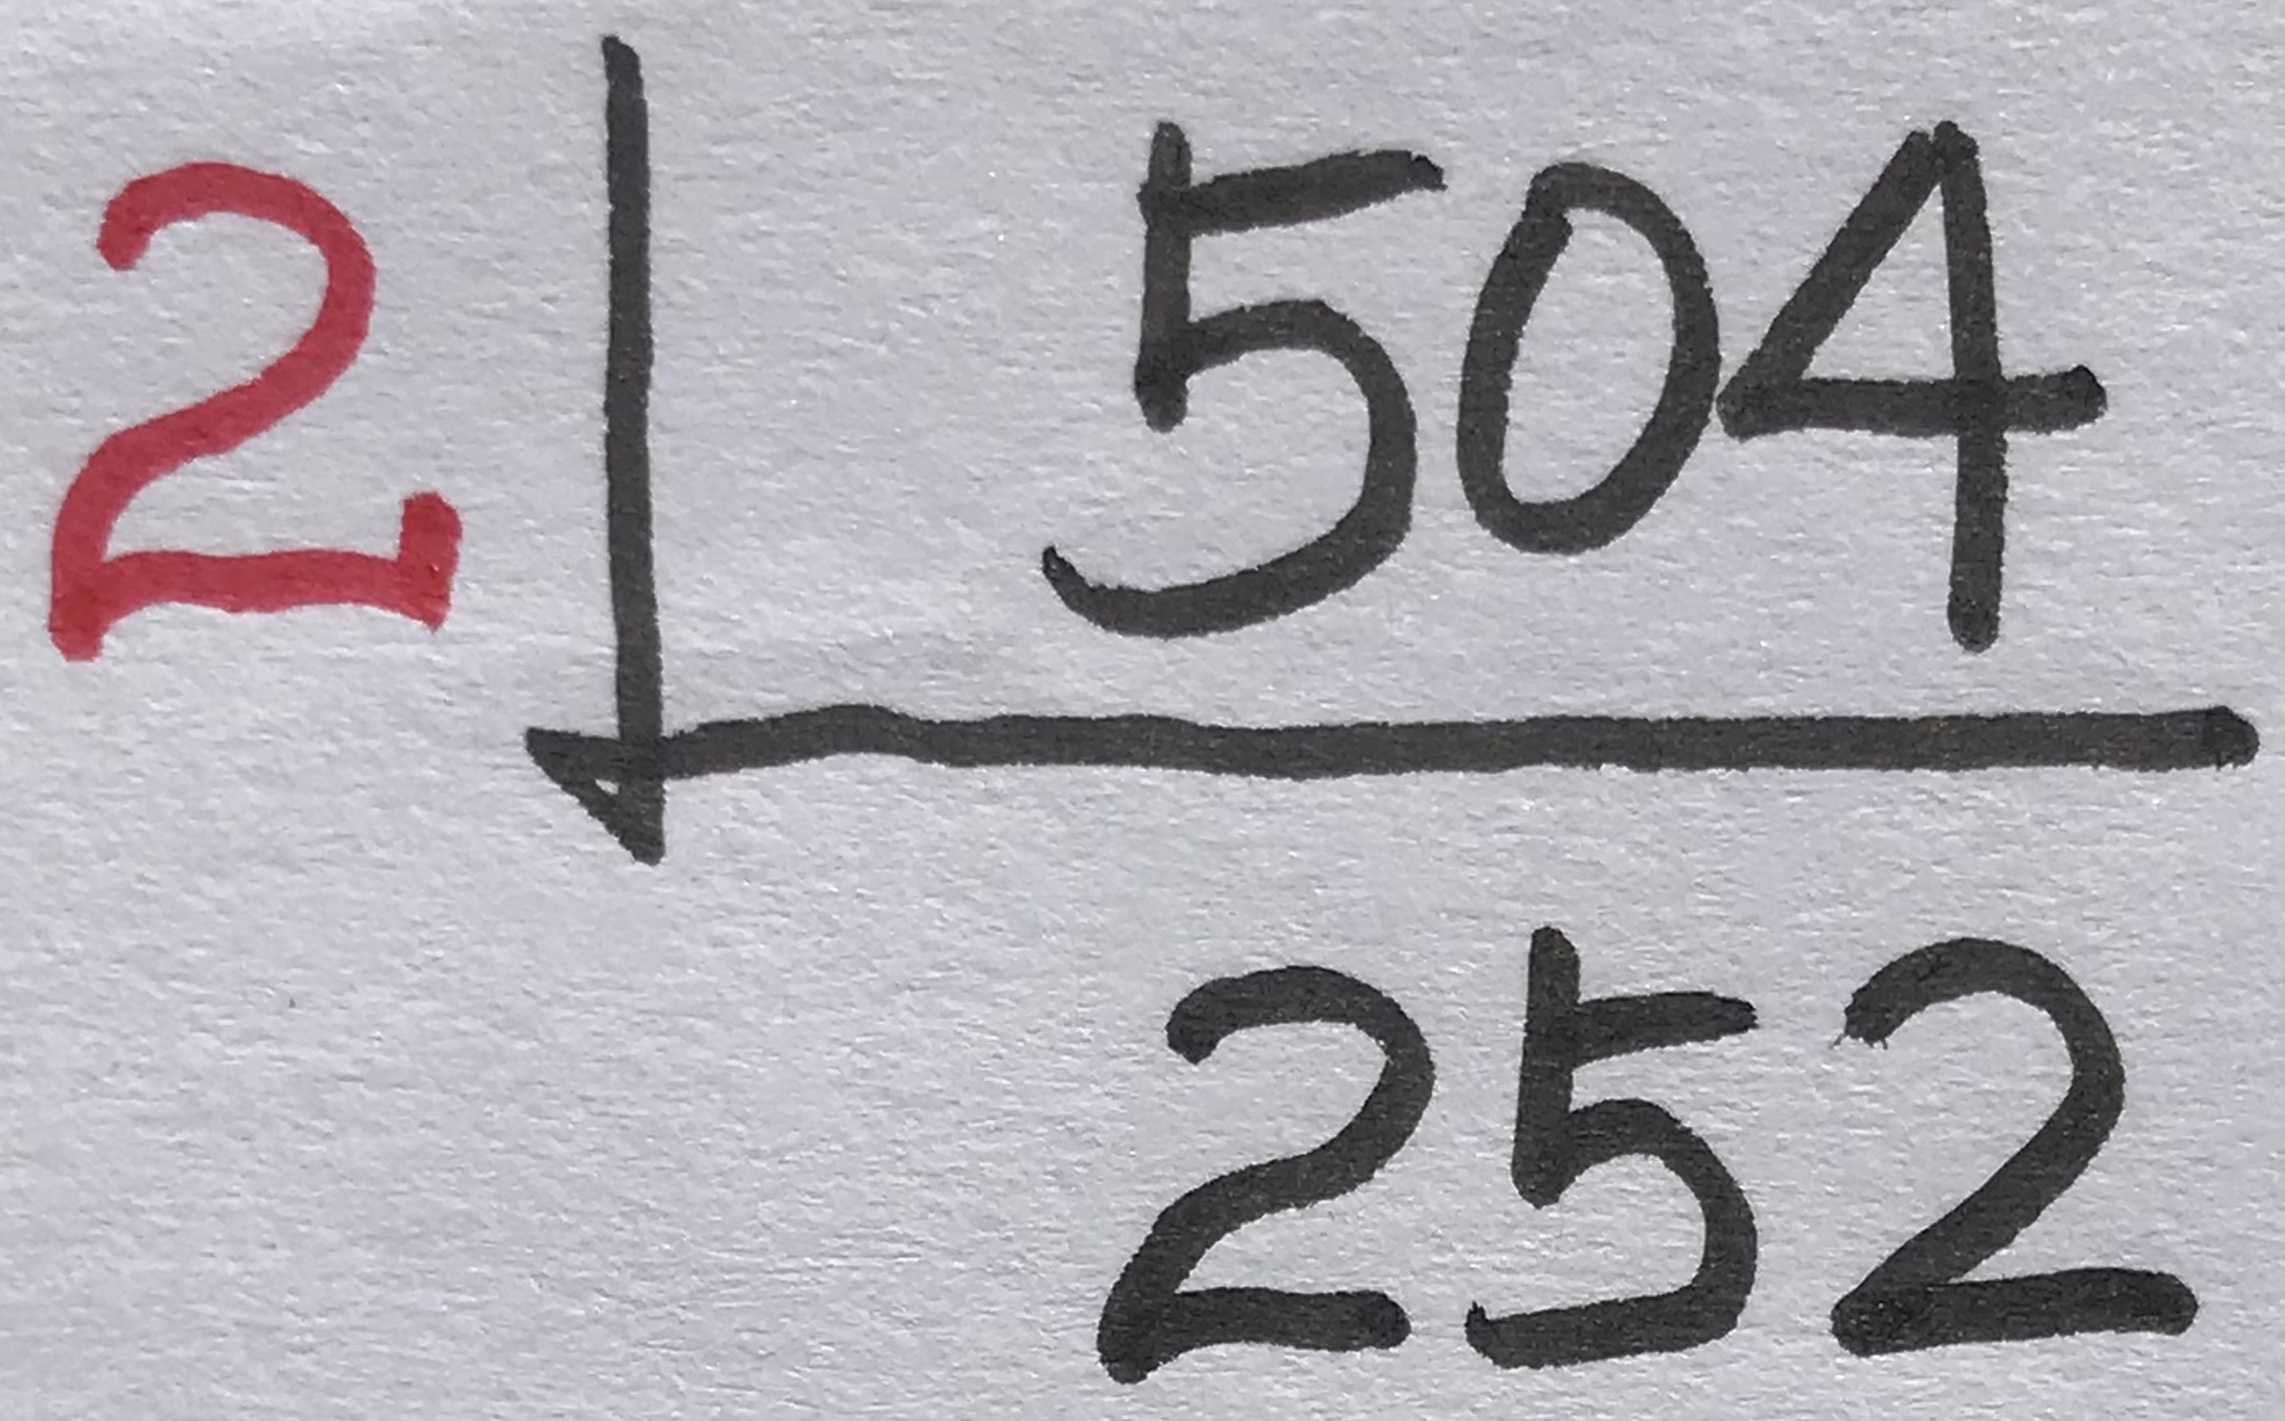 2 504
252